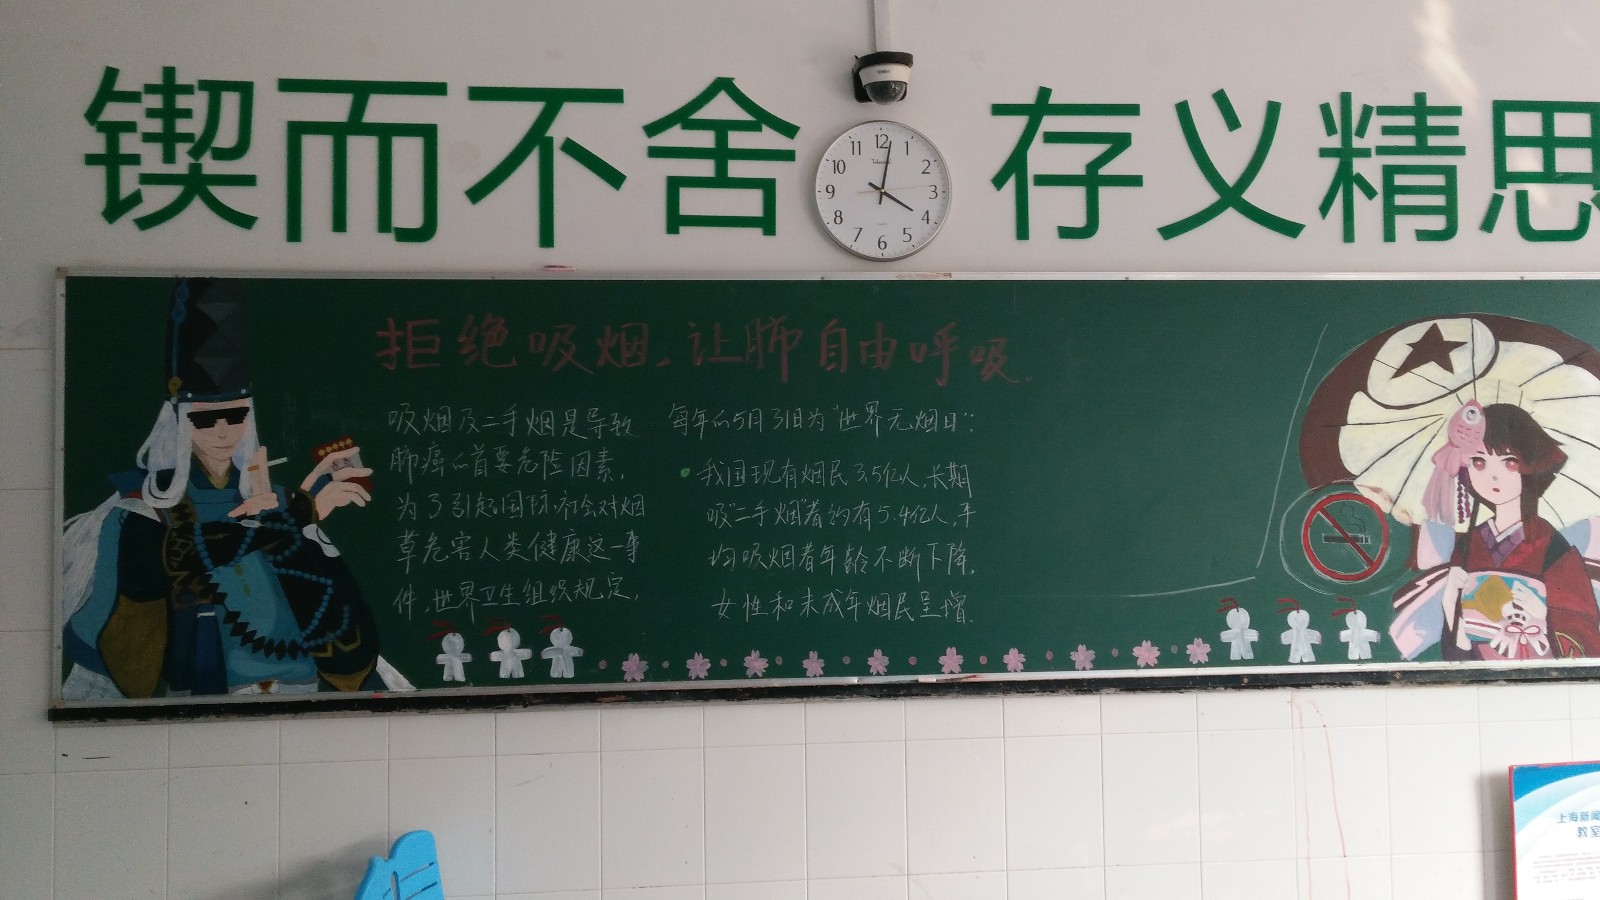 锲而不舍 存义精思
12
1
2
3
4
5
6
7
8
9
10
11
拒绝吸烟，让肺自由呼吸。
吸烟及二手烟是导致
肺癌的首要危险因素，
为了引起国际社会对烟
草危害人类健康这一事
件，世界卫生组织规定，
每年的5月31日为“世界无烟日”：
我国现有烟民3.5亿人，长期
吸“二手烟”者约有5.4亿人，平
均吸烟者年龄不断下降，
女性和未成年烟民呈增．
上海新闻
教室